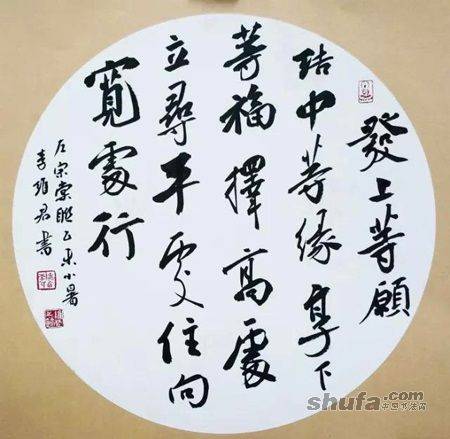 發上等願
結中等緣享下
等福擇高處
立尋平處住向
寬處行
左宗棠聯乙未小暑
君書
shufa.com
中国书法网